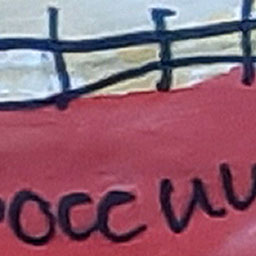 россии